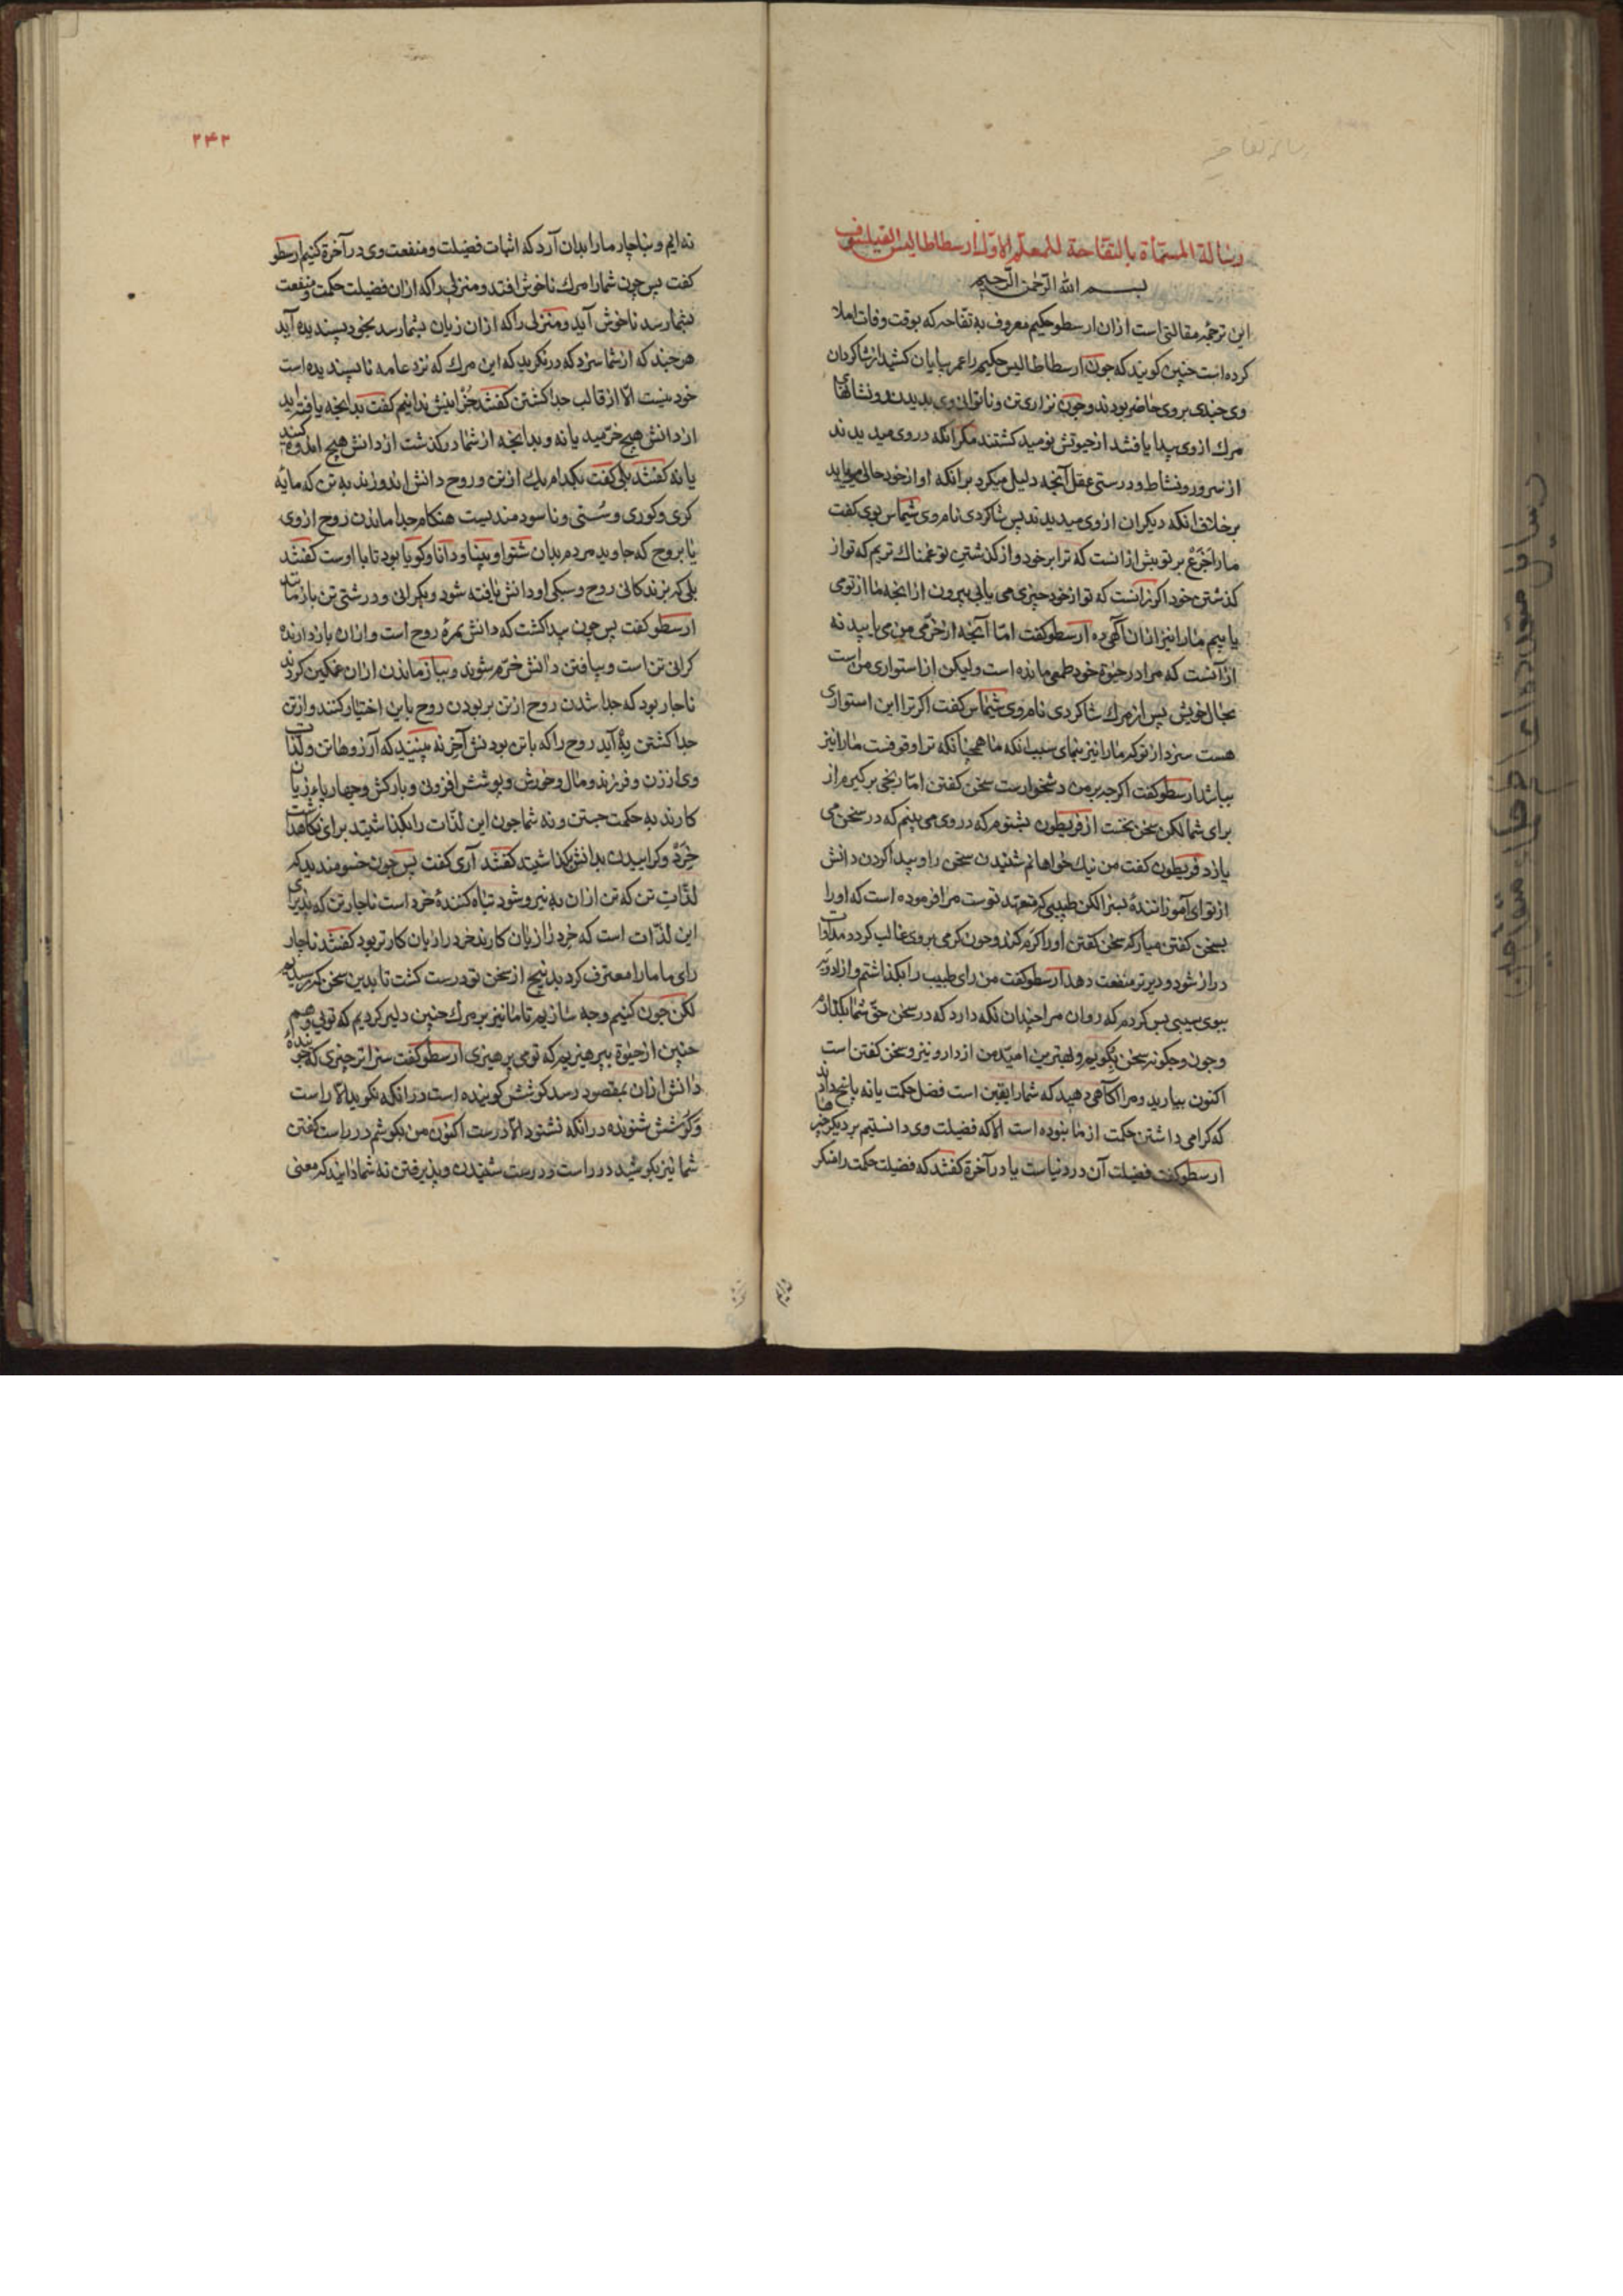 رسالة المسماة بالتفاحة للمعلم الاول ارسطاطاليس الفيلسوف
بسم الله الرحمن الرحیم
این ترجمهٔ مقالتی است ازان ارسطو حکیم معروف به تفاحه که بوقت وفات املا
کرده است چنین کویند که جون ارسطاطالیس حکیم را عمر بپایان کشید از شاکردان
وی جندی بر وی حاضر بودند و جون نزاری تن و ناتوانی وی بدیدند و نشانهای
مرك از وی پیدا یافتند از حیوتش نومید کشتند مکر انکه در وی میدیدند
از سرور و نشاط و درستی عقل آنجه دلیل میکرد برانکه او از خود حالی می یابد
بر خلاف انکه دیکران از وی میدیدند پس شاکردی نام وی شماس بوی کفت
ما را جزع بر تو بیش ازانست که ترا بر خود و از کذشتن تو غمناك تریم که تو از
کذشتن خود اکر زانست که تو از خود چیزی می یابی بیرون ازانجه ما از تو می
یابیم ما را نیز ازان آکهی ده ارسطو کفت اما آنجه از خرمی من می یابید نه
ازآنست که مرا در حیوة خود طمعی مانده است ولیکن از استواری من است
بحال خویش پس از مرك شاکردی نام وی شیماس کفت اکر ترا این استواری
هست سزد از تو که ما را نیز بنمای سبب انکه ما همچنانکه ترا وقوفست ما را نیز
بباشد ارسطو کفت اکرجه بر من دشخوارست سخن کفتن اما رنجی بر کیرم از
برای شما لکن سخن نخست از قریطون بشنوم که در وی می بینم که در سخن می
یازد قریطون کفت من نیك خواهانم شنیدن سخن را و پیدا کردن دانش
از تو ای آموزانندهٔ بسزا لکن طبیبی که متعهد توست مرا فرموده است که او را
بسخن کفتن میار که سخن کفتن او را کرم کند و جون کرمی بر وی غالب کردد مداوات
دراز شود و دیرتر منفعت دهد ارسطو کفت من رای طبیب را بکذاشتم و از ادویه
ببوی سیبی بس کردم که روان مرا چندان نکه دارد که در سخن حق شما بکذارم
و جون و جکونه سخن نکویم و بهترین امید من از دارو نیرو سخن کفتن است
اکنون بیارید و مرا آکاهی دهید که شما را یقین است فضل حکمت یا نه پاسخ دادند
که کرامی داشتن حکمت از ما نبوده است الا که فضیلت وی دانستیم بر دیکر چیزها
ارسطو کفت فضیلت آن در دنیاست یا در آخرة کفتند که فضیلت حکمت را منکر
۲۴۲
نه ایم و بناچار ما را بدان آرد که اثبات فضیلت و منفعت وی در آخرة کنیم ارسطو
کفت پس چون شما را مرك ناخوش افتد و منزلی را که ازان فضیلت حکمت و منفعت
بشما رسد ناخوش آید و منزلی را که ازان زیان بشما رسد بخود پسندیده آید
هرجند که از شما سزد که در نکرید که این مرك که نزد عامه ناپسندیده است
خود نیست الا از قالب جدا کشتن کفتند جز اینش ندانیم کفت بدانجه یافته اید
از دانش هیچ خرمید یا نه و بدانجه از شما درکذشت از دانش هیچ اندوه کنید
یا نه کفتند بلی کفت بکدام یك از تن و روح دانش اندوزند به تن که مایهٔ
کری و کوری و سستی و ناسودمندیست هنکام جدا ماندن روح از وی
یا بروح که جاوید مردم بدان شنوا و بینا و دانا و کویا بود تا با اوست کفتند
بلی که بزندکانی روح و سبکی او دانش یافته شود و بکرانی و درشتی تن بازماند
ارسطو کفت پس جون پیدا کشت که دانش ثمرهٔ روح است و ازان بازدارنده
کرانی تن است و بیافتن دانش خرم شوند و ببازماندن ازان غمکین کردند
ناجار بود که جدا شدن روح از تن بر بودن روح با تن اختیار کنند و از تن
جدا کشتن به آید روح را که با تن بودنش آخر نه بینید که آرزوهای تن و لذات
وی از زن و فرزند و مال و خورش و پوشش افزونی و بارکش و جهارپای زیان
کارند به حکمت جستن و نه شما جون این لذات را بکذاشتید برای نکاهداشت
خرد و کراییدن بدانش بکذاشتید کفتند آری کفت پس جون خستو مندید که
لذات تن که تن ازان به نیرو شود تباه کنندهٔ خرد است ناجار تن که پذیرای
این لذات است که خرد را زیان کارند خرد را زیان کارتر بود کفتند ناجار
رای ما ما را معترف کرد بدنیچ از سخن تو درست کشت تا بدین سخن که رسیدیم
لکن جون کنیم و جه سازیم تا ما نیز بر مرك چنین دلیر کردیم که تویی و هم
جنین از حیوة بپرهیزیم که تو می پرهیزی ارسطو کفت سزاتر چیزی که جویندهٔ
دانش ازان بمقصود رسد کوشش کوینده است درانکه نکوید الا راست
و کوشش شنونده درانکه نشنود الا درست اکنون من بکوشم در راست کفتن
شما نیز بکوشید در راست و درست شنیدن و پذیرفتن نه شما دانید که معنی